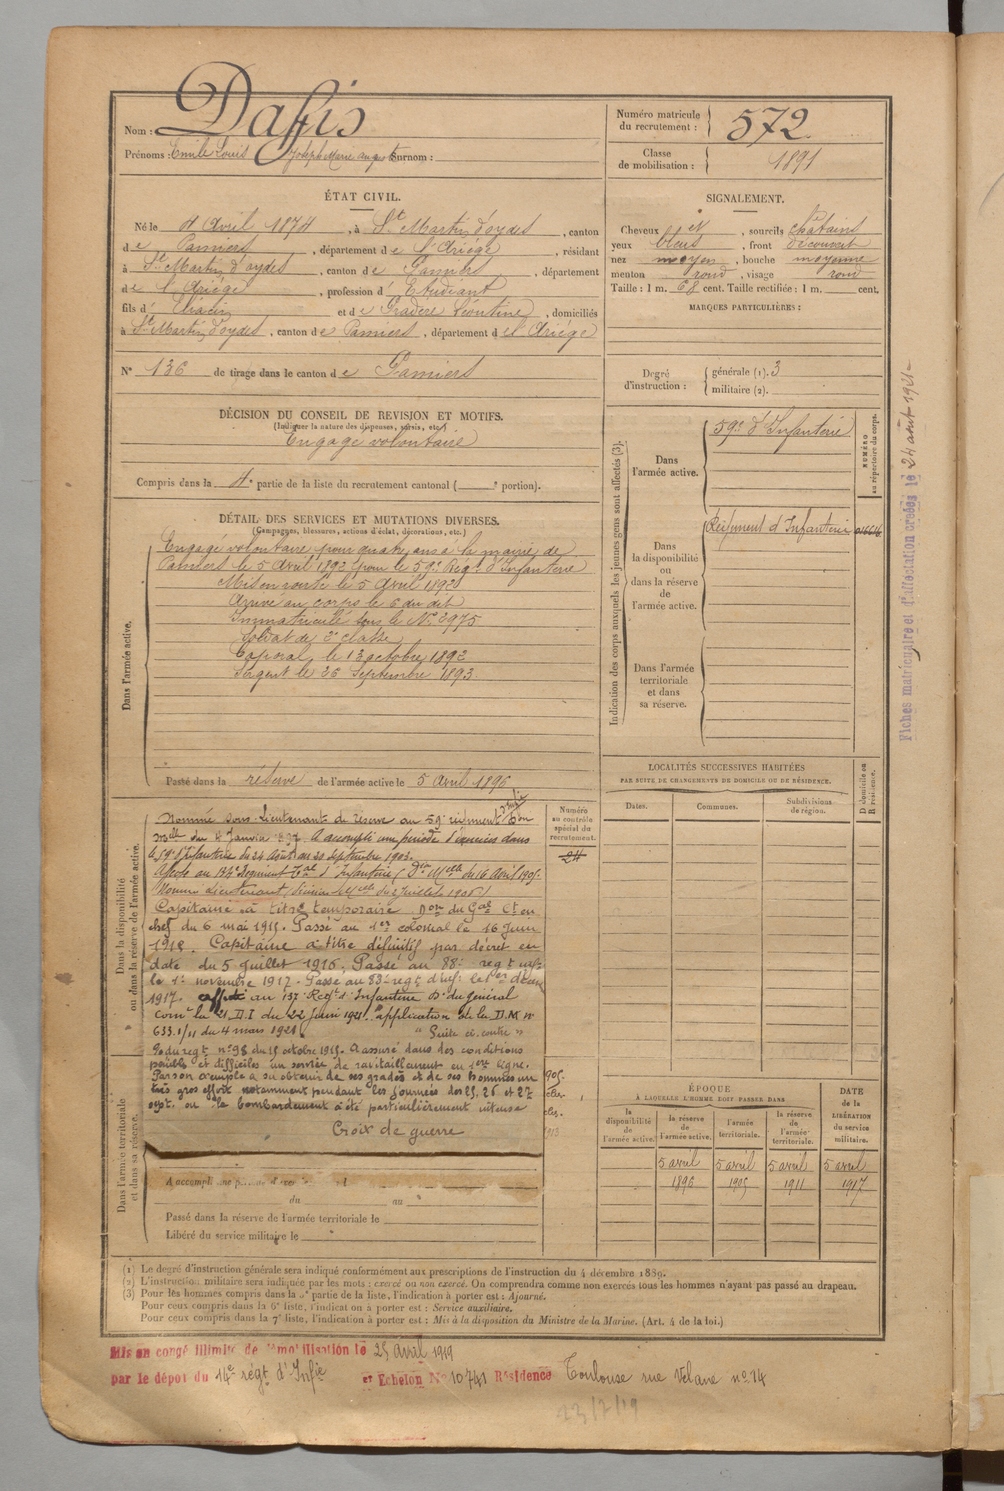 Nom : Daffis
Prénoms : Emile Louis Joseph Marie August Surnom :
Numéro matricule du recrutement : 572
Classe de mobilisation : 1891
ÉTAT CIVIL.
Né le 4 Avril 1874, à St Martin d'oydes, canton
de Pamiers, département de l'Ariège, résidant
à St Martin d'oydes, canton de Pamiers, département
de l'Ariège, profession d'Etudiant
fils d' et de Gradere Léontine, domiciliés
à St Martin d'oydes, canton de Pamiers, département de l'Ariège
N° 136 de tirage dans le canton de Pamiers
SIGNALEMENT.
Cheveux et, sourcils châtains
yeux bleus, front découvert
nez moyen, bouche moyenne
menton rond, visage rond
Taille : 1 m. 68 cent. Taille rectifiée : 1 m. cent.
MARQUES PARTICULIÈRES :
Degré d'instruction : générale (1). 3
militaire (2).
DÉCISION DU CONSEIL DE REVISION ET MOTIFS.
(Indiquer la nature des dispenses, sursis, etc.)
Engagé volontaire
Compris dans la 4e partie de la liste du recrutement cantonal ( e portion).
DÉTAIL DES SERVICES ET MUTATIONS DIVERSES.
(Campagnes, blessures, actions d'éclat, décorations, etc.)
Dans l'armée active.
Engagé volontaire pour quatre ans à la mairie de
Pamiers le 5 Avril 1892 pour le 59e Régt d'Infanterie
Mis en route le 5 Avril 1892
Arrivé au corps le 6 du dit
Immatriculé sous le No 2975
Soldat de 2e classe
Caporal le 13 octobre 1892
Sergent le 26 Septembre 1893
Passé dans la réserve de l'armée active le 5 Avril 1896
Indication des corps auxquels les jeunes gens sont affectés (3).
Dans l'armée active.
59e d'Infanterie
NUMÉRO au répertoire du corps.
Dans la disponibilité ou dans la réserve de l'armée active.
Régiment d'Infanterie
Dans l'armée territoriale et dans sa réserve.
Fiches matriculaire et d'affectation créées le 24 août 1921
LOCALITÉS SUCCESSIVES HABITÉES
PAR SUITE DE CHANGEMENTS DE DOMICILE OU DE RÉSIDENCE.
Dates. Communes. Subdivisions de région. D domicile ou R résidence.
Dans la disponibilité ou dans la réserve de l'armée active.
Numéro au contrôle spécial du recrutement.
24
Nommé sous-Lieutenant de réserve au 59e régiment d'Infie Don
Mlle du 4 Janvier 1897. A accompli une période d'exercices dans
le 59e d'Infanterie du 24 Août au 20 septembre 1903.
Affecté au 134e Régiment Tal d'Infanterie (Don Mlle du 16 Avril 1905
Nommé Lieutenant (décision Mlle du 2 Juillet 1906)
Capitaine à titre temporaire Don du Gal Ct en
chef du 6 mai 1915. Passé au 1er colonial le 16 Juin
1915. Capitaine à titre définitif par décret en
date du 5 Juillet 1916. Passé au 88e regt infie
le 1er novembre 1917. Passé au 83e regt d'inf. le 1er décem
1917. affecté au 137 Regt d'Infanterie Dn du Général
comt la 21 D.I du 22 Juin 1921. application de la D.M no
633.1/11 du 4 mars 1921 "Suite ci-contre"
O. du regt no 98 du 15 octobre 1915. A assuré dans des conditions
pénibles et difficiles un service de ravitaillement en 1ère ligne.
Par son exemple a su obtenir de ses gradés et de ses hommes un
très gros effort notamment pendant les journées des 25, 26 et 27
sept. ou le bombardement a été particulièrement intense
Croix de guerre
Dans l'armée territoriale et dans sa réserve.
A accompli une
du au
Passé dans la réserve de l'armée territoriale le
Libéré du service militaire le
ÉPOQUE
À LAQUELLE L'HOMME DOIT PASSER DANS
la disponibilité de l'armée active.
la réserve de l'armée active.
l'armée territoriale.
la réserve de l'armée territoriale.
DATE de la LIBÉRATION du service militaire.
5 avril 1896
5 avril 1905
5 avril 1911
5 avril 1917
(1) Le degré d'instruction générale sera indiqué conformément aux prescriptions de l'instruction du 4 décembre 1889.
(2) L'instruction militaire sera indiquée par les mots : exercé ou non exercé. On comprendra comme non exercés tous les hommes n'ayant pas passé au drapeau.
(3) Pour les hommes compris dans la 2e partie de la liste, l'indication à porter est : Ajourné.
Pour ceux compris dans la 6e liste, l'indication à porter est : Service auxiliaire.
Pour ceux compris dans la 7e liste, l'indication à porter est : Mis à la disposition du Ministre de la Marine. (Art. 4 de la loi.)
Mis en congé illimité de démobilisation le 25 avril 1919
par le dépôt du 14e régt d'Infie et Echelon No 10741 Résidence Toulouse rue Velane no 14
23/7/19